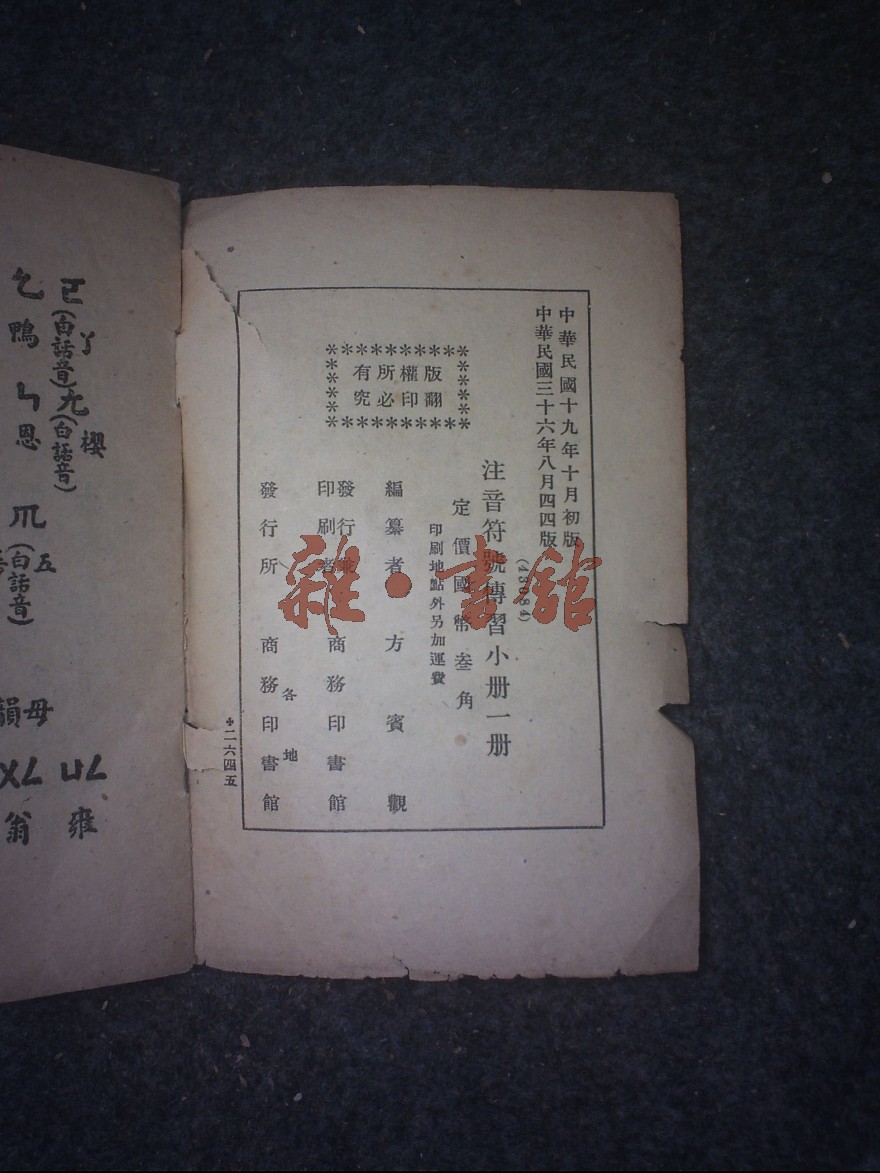 中華民國十九年十月初版
中華民國三十六年八月四四版
(43084)
注音符號傳習小册一册
定價國幣叁角
印刷地點外另加運費
版權所有
翻印必究
編纂者 方賓觀
發行兼印刷者 商務印書館
發行所 各地 商務印書館
二六四五
雜·書館
ㄈ(白話音)ㄚ
ㄤ(白話音)櫻
ㄅ恩
(白話音)五
韻母
ㄩㄥ雍
ㄨㄥ翁
鴨